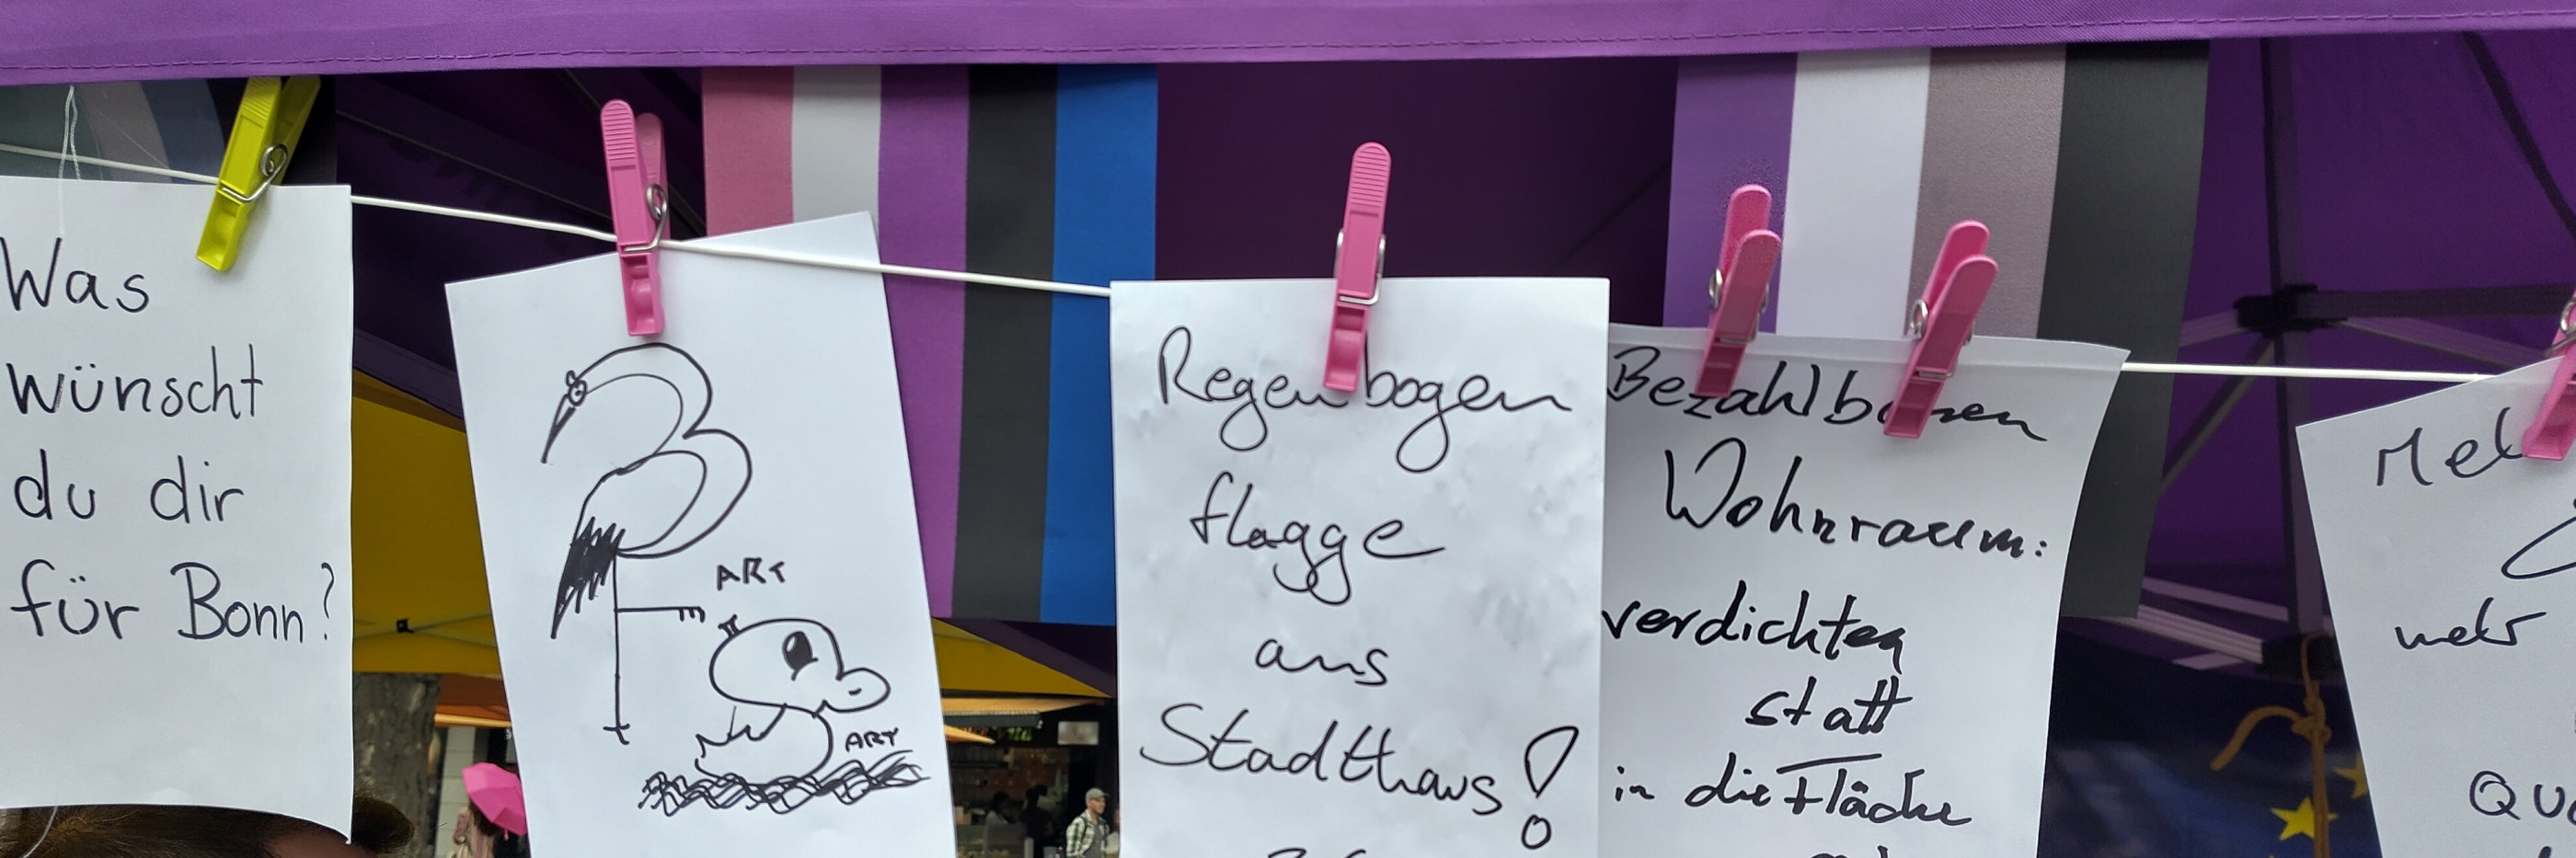 Was
wünscht
du dir
für Bonn?
ART
ART
Regenbogen
flagge
ans
Stadthaus!
Bezahlbaren
Wohnraum:
verdichten
statt
in die Fläche
mehr